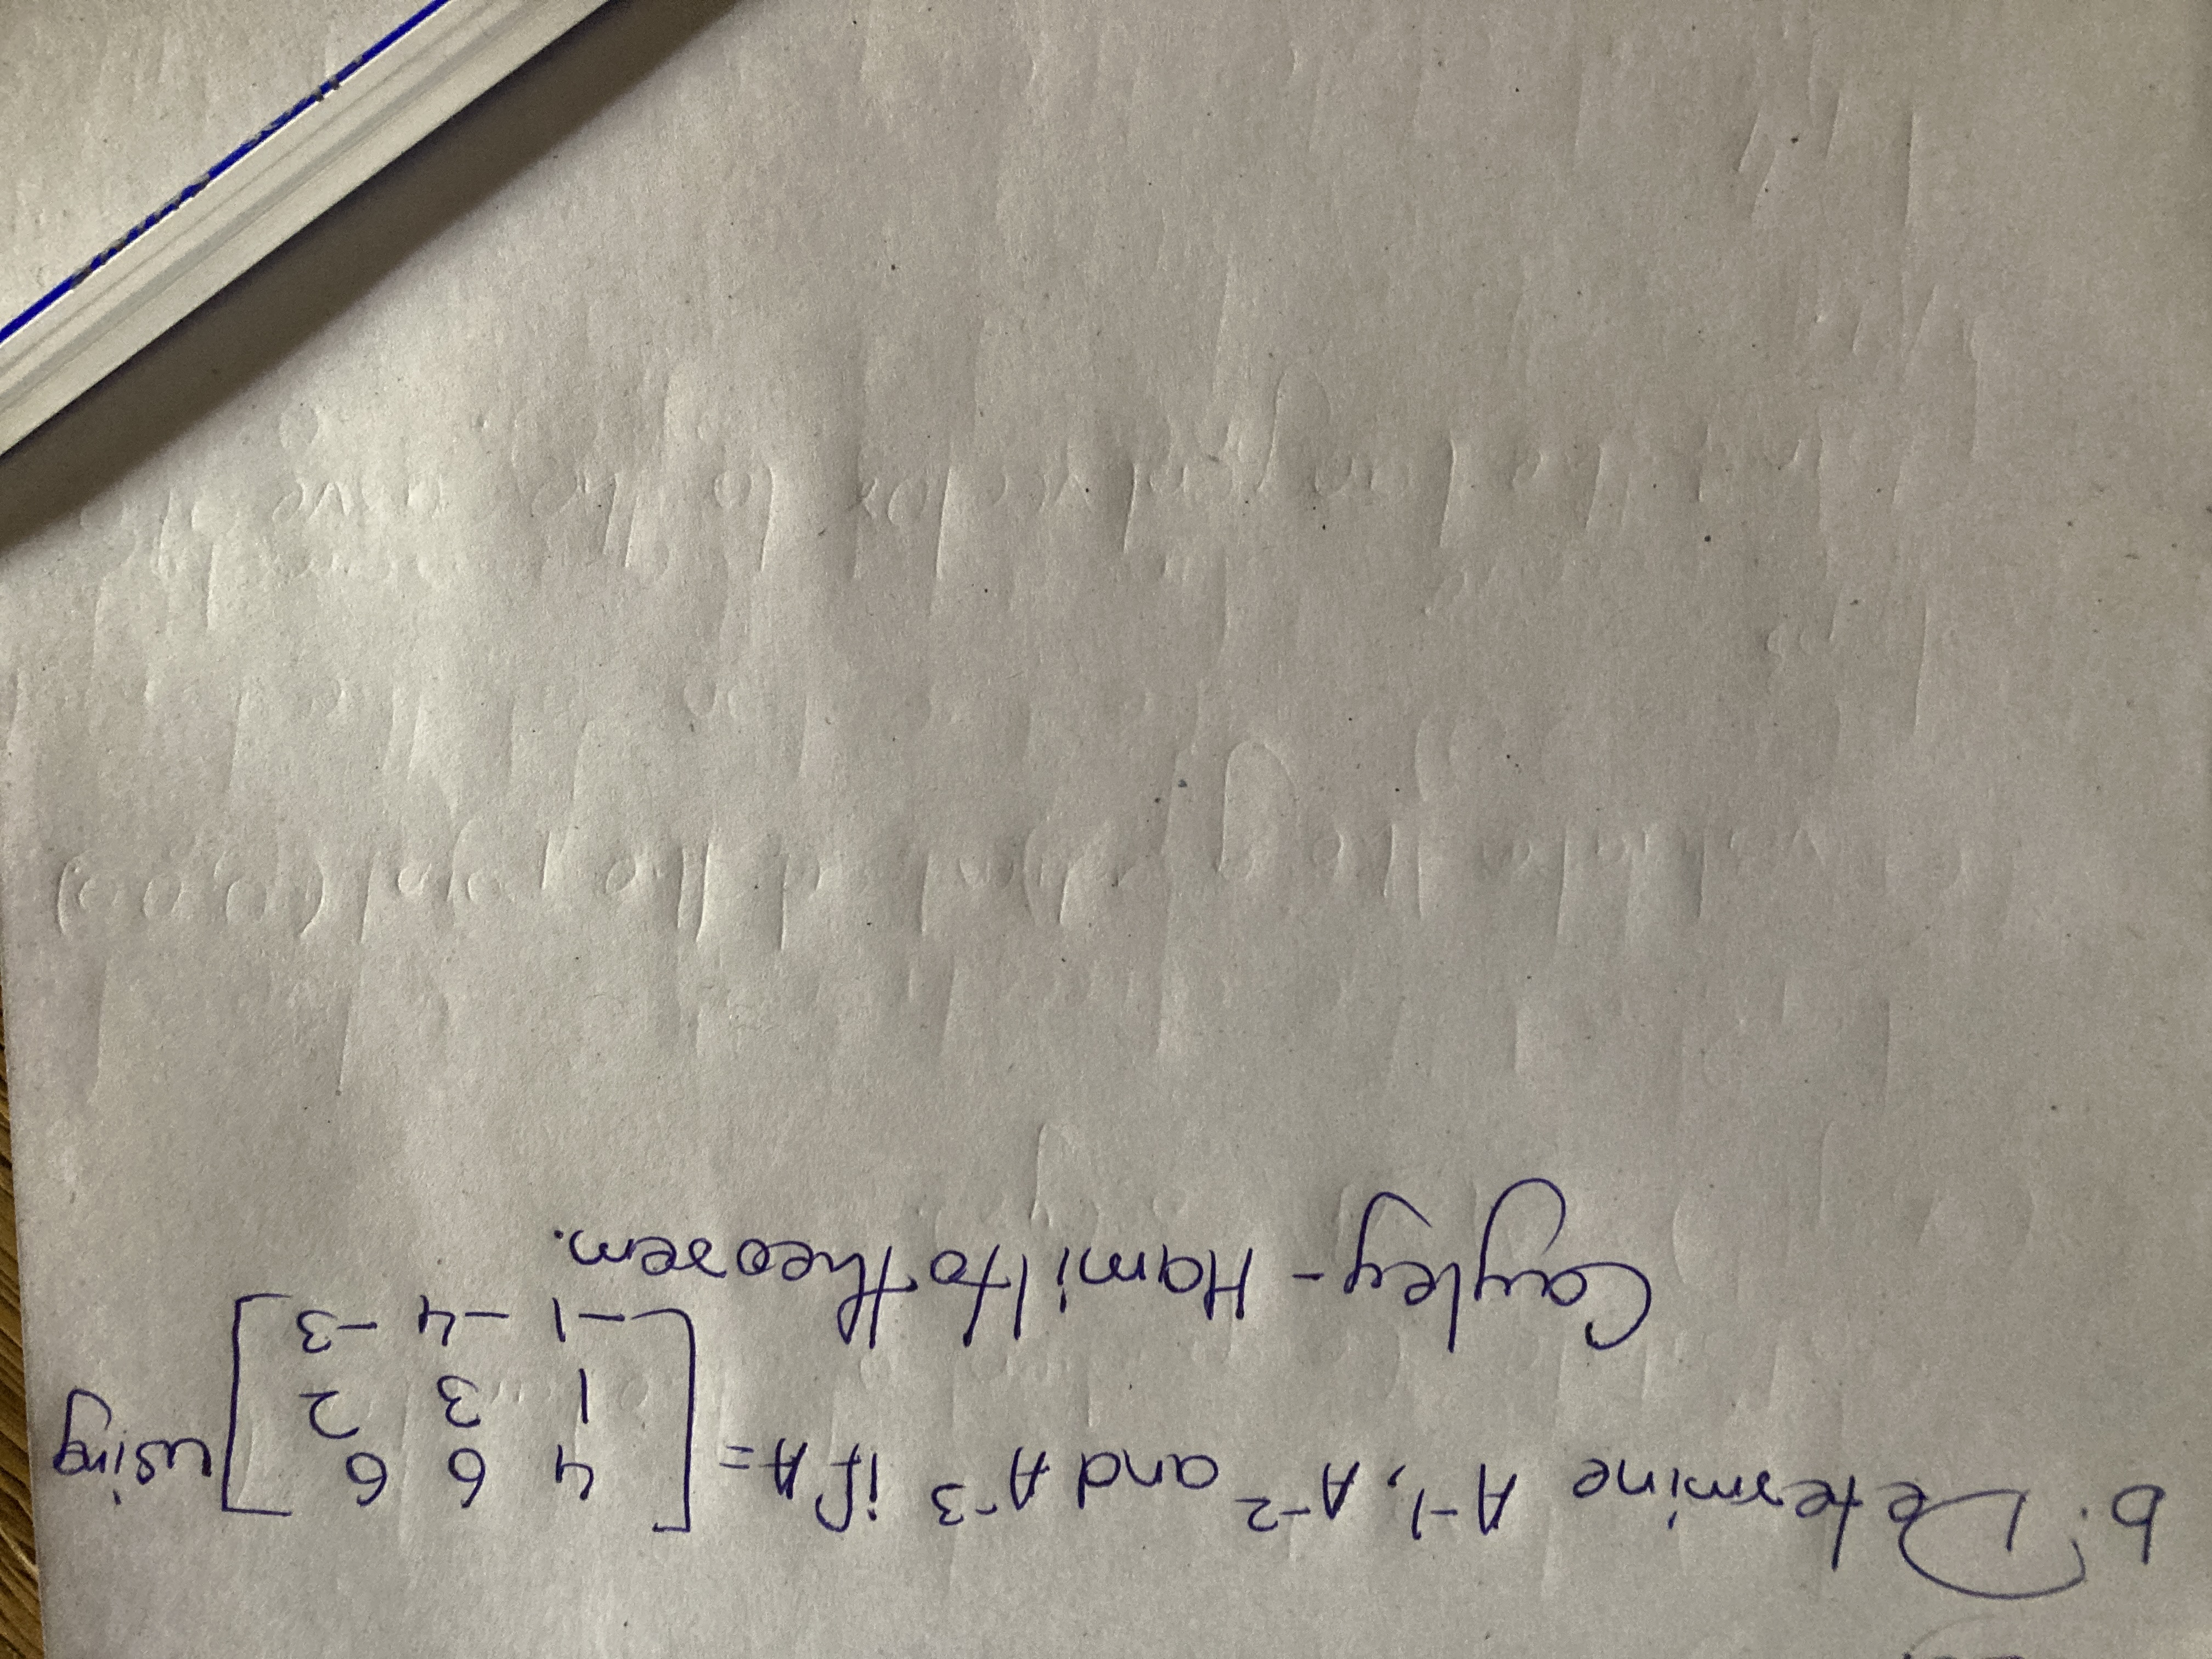 b. Determine A⁻¹, A⁻² and A⁻³ if A = [4 6 6
1 3 2
-1 -4 -3] using
Cayley - Hamilto theorem.